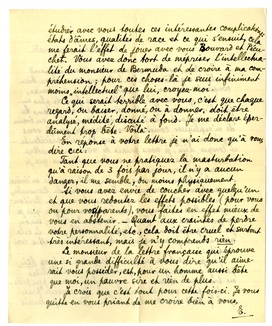 étudier avec vous toutes ces intéressantes complications,
états d'âmes, qualités de race et ce qui s'ensuit, cela
me ferait l'effet de jouer avec vous Bouvard et Pécu-
chet. Vous avez donc tort de mépriser l'intellectua-
lité du monsieur de Bermuda et de croire à ma com-
préhension; pour ces choses-là je suis infiniment
moins "intellectuel" que lui, croyez-moi.
Ce qui serait terrible avec vous, c'est que chaque
regard, ou baiser, donné, ou à donner, doit être
analysé, médité, discuté à fond. Je me déclare éper-
dument trop bête. Voilà.
En réponse à votre lettre je n'ai donc qu'à vous
dire ceci:
Tant que vous ne pratiquez la masturbation
qu'à raison de 3 fois par jour, il n'y a aucun
danger, il me semble, au moins physiquement.
Si vous avez envie de coucher avec quelqu'un
et que vous redoutez les effets possibles (pour vous
ou pour vos parents), vous faites en effet mieux de
vous en abstenir. Quant aux craintes de perdre
votre personnalité, etc., cela doit être cruel et surtout
très intéressant, mais je n'y comprends rien.
Le monsieur de la lettre française qui éprouve
une si grande difficulté à vous dire qu'il aime-
rait vous posséder, est, pour un homme aussi bête
que moi, un pauvre sire et rien de plus.
Je crois que c'est tout pour cette fois-ci. Je vous
quitte en vous priant de me croire bien à vous,